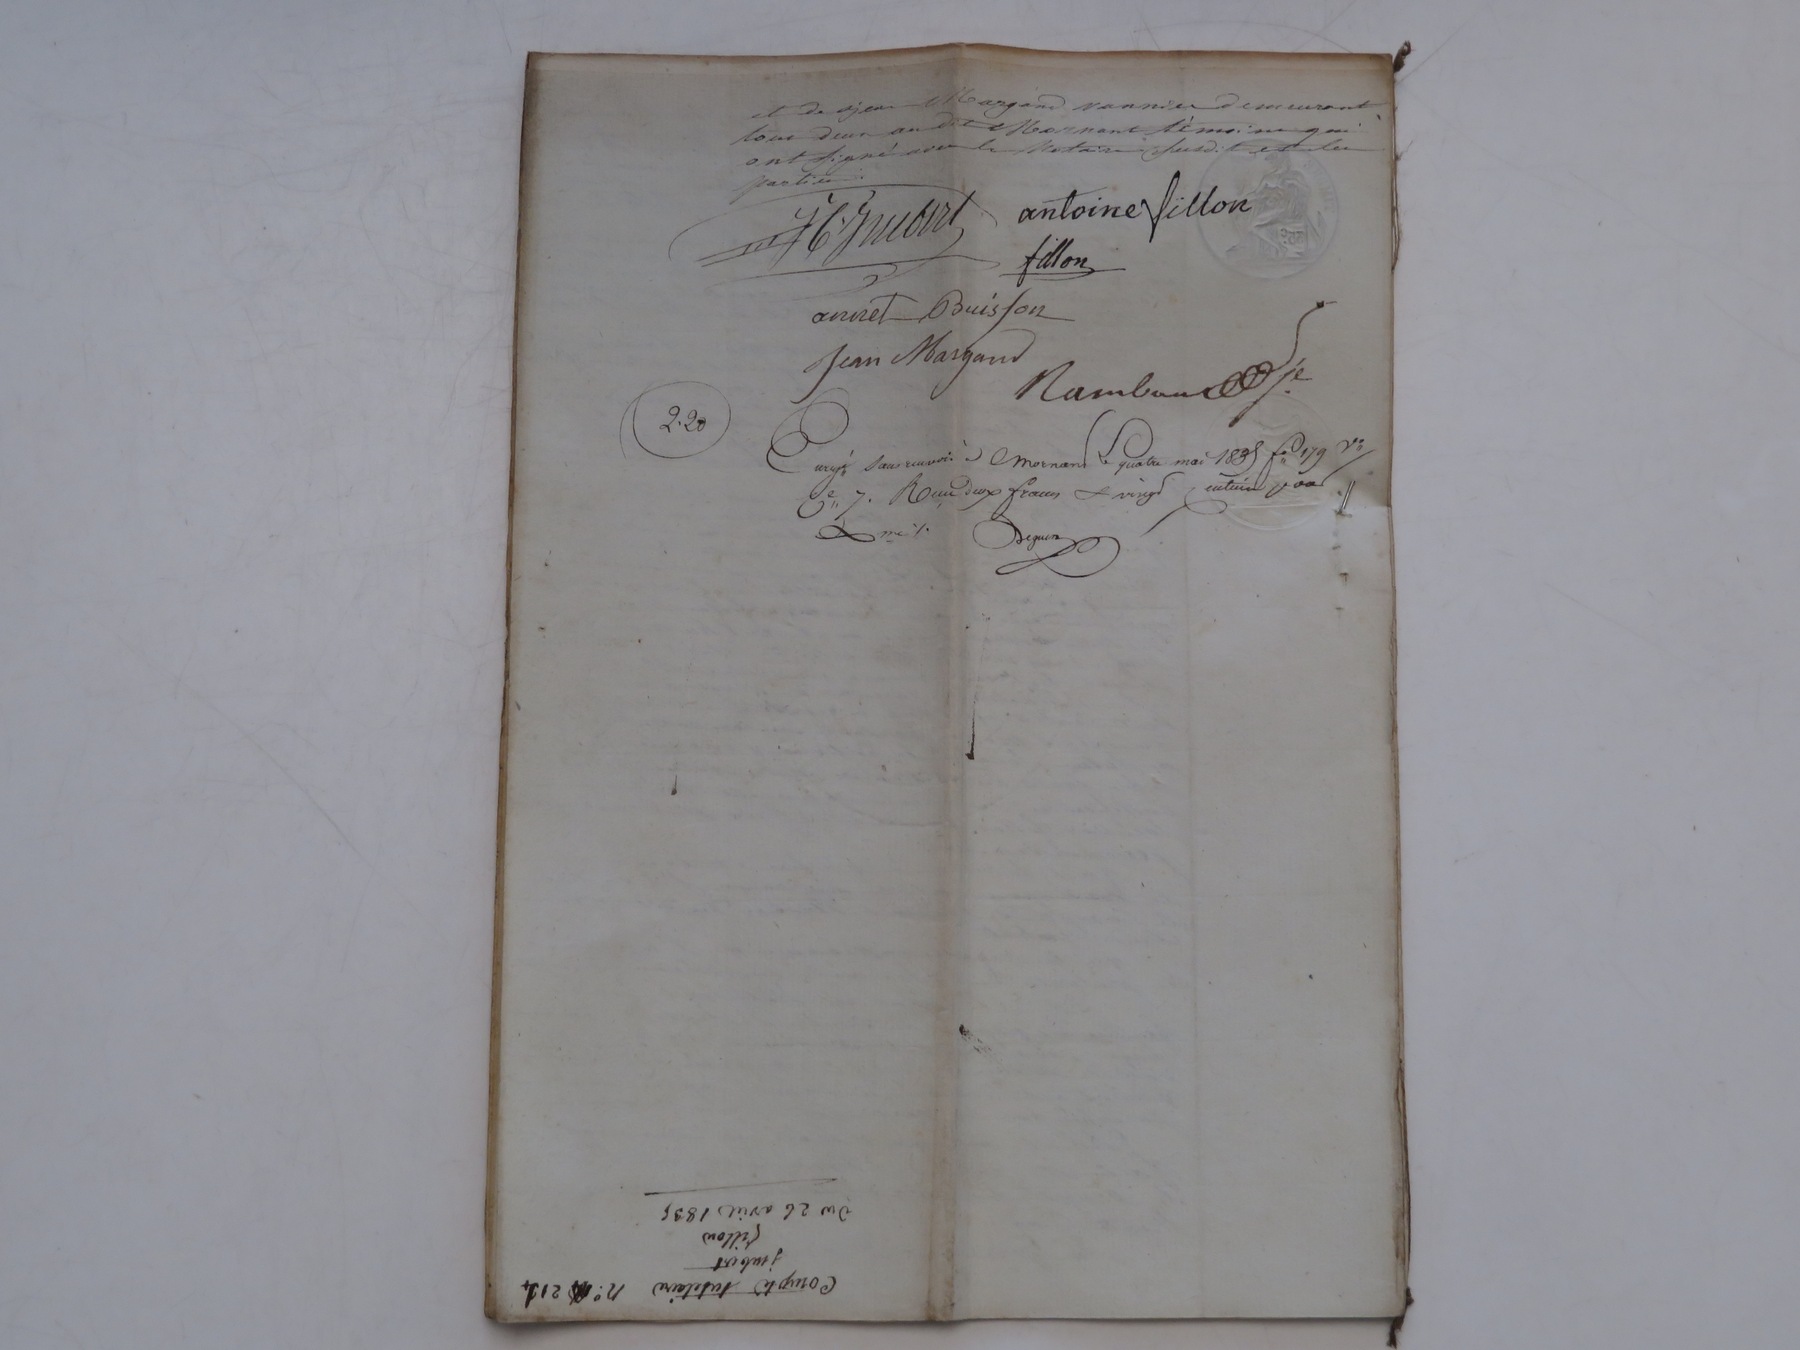 et de Jean Margand vannier demeurant
tous deux au dit Mornant témoins qui
ont signé avec le Notaire susdit et les
parties.
antoine fillon
fillon
annet Buisson
Jean Margand
2.20
à Mornant le quatre mai 1835 fo 179 Vo
Ce 7. Reçu deux francs & vingt centimes pour
Deguin
Compte tutelaire No. 214
jmbert
fillon
Du 26 avril 1835